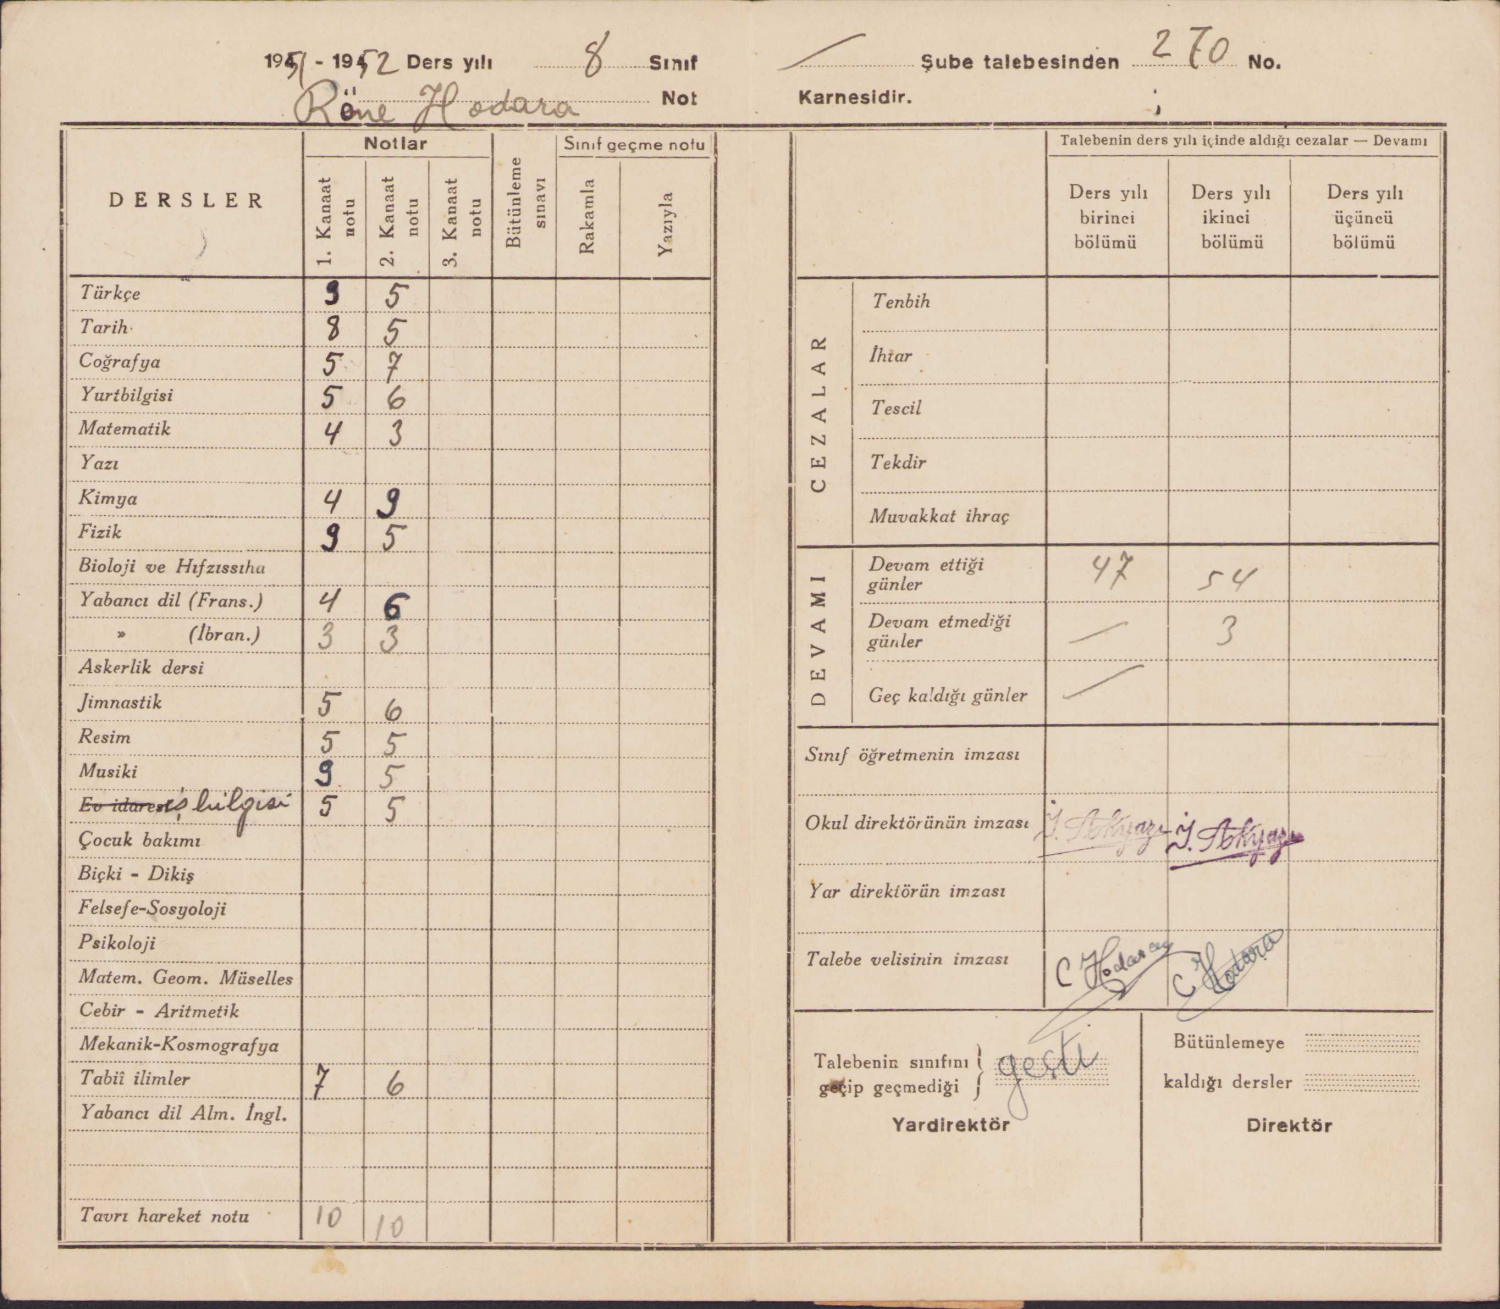 1951 - 1952 Ders yılı 8 Sınıf
Röne Hodara Not
Şube talebesinden 270 No.
Karnesidir.
DERSLER
Notlar
Sınıf geçme notu
1. Kanaat notu
2. Kanaat notu
3. Kanaat notu
Bütünleme sınavı
Rakamla
Yazıyla
Türkçe 9 5
Tarih 8 5
Coğrafya 5 7
Yurtbilgisi 5 6
Matematik 4 3
Yazı
Kimya 4 9
Fizik 9 5
Bioloji ve Hıfzıssıha
Yabancı dil (Frans.) 4 6
» (İbran.) 3 3
Askerlik dersi
Jimnastik 5 6
Resim 5 5
Musiki 9 5
Ev idaresi iş bilgisi 5 5
Çocuk bakımı
Biçki - Dikiş
Felsefe-Sosyoloji
Psikoloji
Matem. Geom. Müselles
Cebir - Aritmetik
Mekanik-Kosmografya
Tabiî ilimler 7 6
Yabancı dil Alm. İngl.
Tavrı hareket notu 10 10
Talebenin ders yılı içinde aldığı cezalar — Devamı
Ders yılı birinci bölümü
Ders yılı ikinci bölümü
Ders yılı üçüncü bölümü
CEZALAR
Tenbih
İhtar
Tescil
Tekdir
Muvakkat ihraç
DEVAMI
Devam ettiği günler 47 54
Devam etmediği günler — 3
Geç kaldığı günler —
Sınıf öğretmenin imzası
Okul direktörünün imzası İ. Akyazı İ. Akyazı
Yar direktörün imzası
Talebe velisinin imzası C Hodara C Hodara
Talebenin sınıfını
geçip geçmediği } geçti
Yardirektör
Bütünlemeye
kaldığı dersler
Direktör